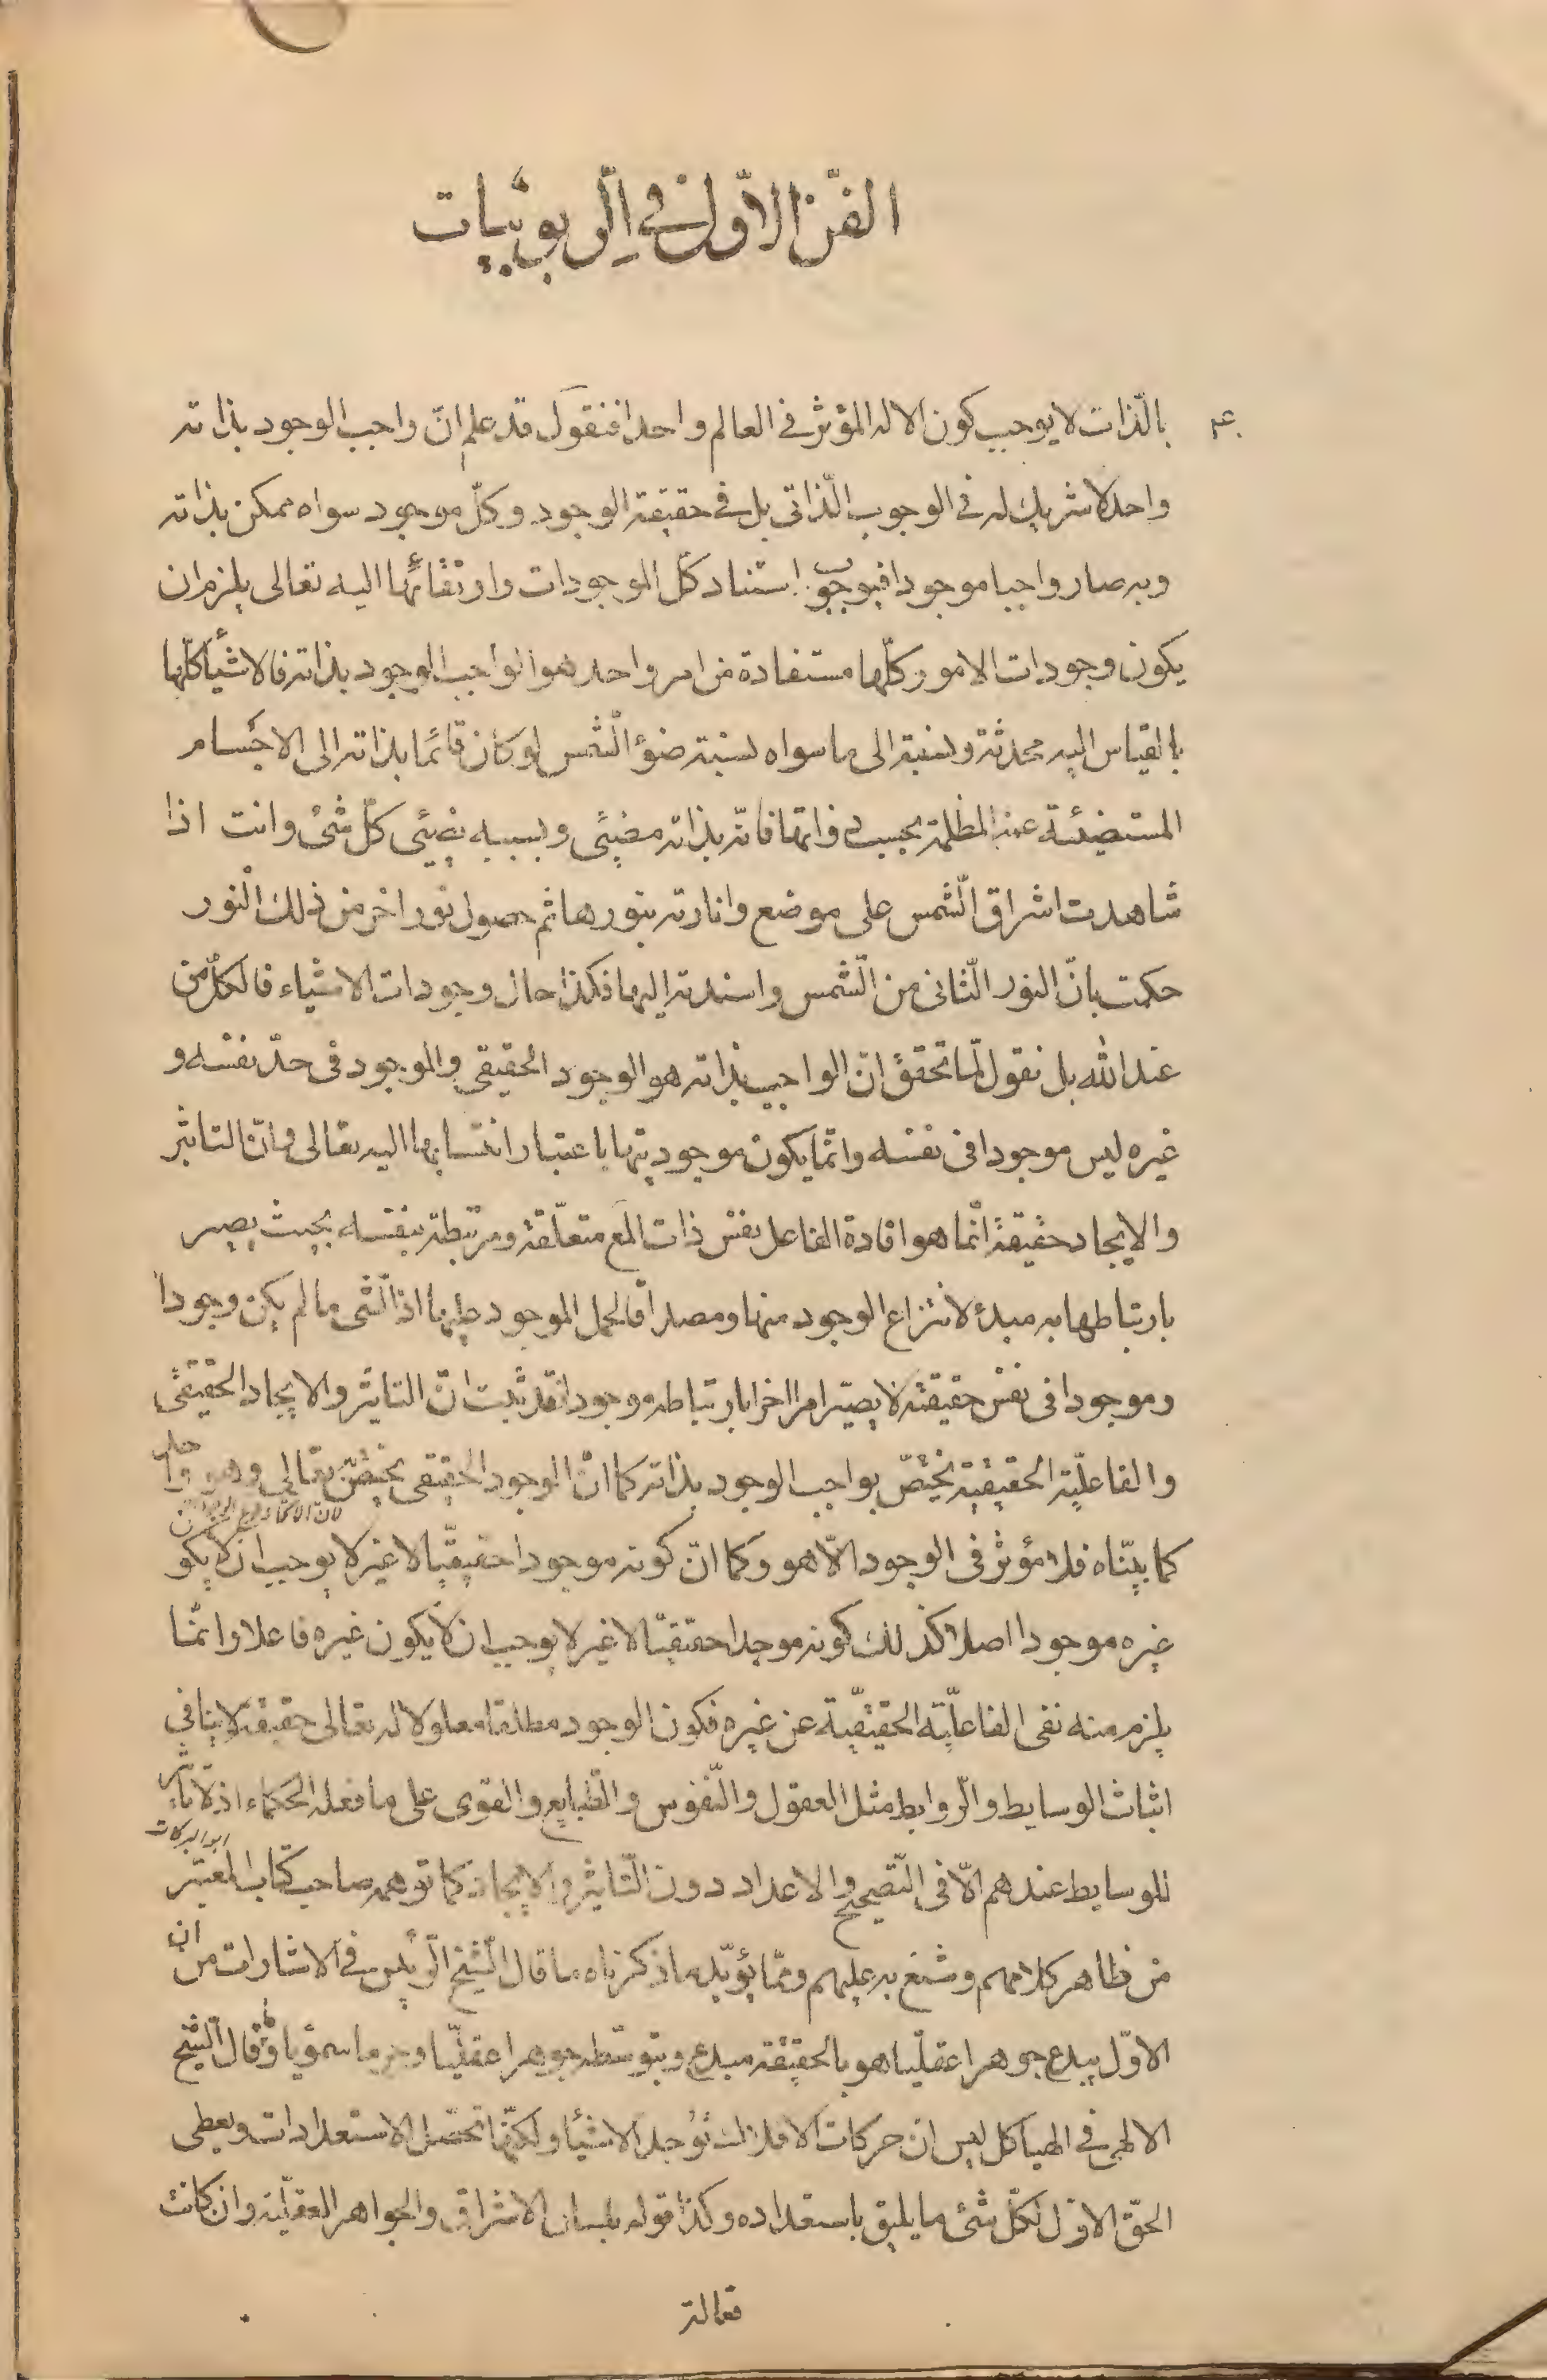 الفنّ الاوّل في الربوبيّات
بالذّات لا يوجب كون الاله المؤثر في العالم واحدا فنقول قد علم انّ واجب الوجود بذاته
واحد لا شريك له في الوجوب الذّاتى بل في حقيقة الوجود وكلّ موجود سواه ممكن بذاته
وبه صار واجبا موجودا فبوجوب استناد كلّ الموجودات وارتقائها اليه تعالى يلزم ان
يكون وجودات الامور كلّها مستفادة من امر واحد هو الواجب الوجود بذاته فالاشيأ كلّها
بالقياس اليه محدثة ونسبته الى ما سواه نسبة ضؤ الشّمس لو كان قائمًا بذاته الى الاجسام
المستضيئة عنه المظلمة بحسب ذواتها فانّه بذاته مضيئى وبسببه يضيئى كلّ شئ وانت اذا
شاهدت اشراق الشّمس على موضع وانارته بنورها ثم حصول نور اخر من ذلك النّور
حكمت بانّ النور الثّانى من الشّمس واسندته اليها فكذا حال وجودات الاشياء فالكلّ من
عند الله بل نقول لمّا تحقق انّ الواجب بذاته هو الوجود الحقيقى والموجود فى حدّ نفسه و
غيره ليس موجودا فى نفسه وانّما يكون موجوديتها باعتبار انتسابها اليه تعالى وانّ التاثير
والايجاد حقيقة انّما هو افادة الفاعل نفس ذات المع متعلّقة ومرتبطة بنفسه بحيث يصير
بارتباطها به مبدء لانتزاع الوجود منها ومصداقا لحمل الموجود عليها اذ الشّى ما لم يكن وجودا
وموجودا فى نفس حقيقته لا يصيّر امرا اخرا بارتباطه موجودا فقد ثبت انّ التاثير والايجاد الحقيقى
والفاعليّة الحقيقيّة يختصّ بواجب الوجود بذاته كما انّ الوجود الحقيقى يختصّ به تعالى وهو واحد
كما بيّناه فلا مؤثر فى الوجود الّا هو وكما انّ كونه موجودا حقيقيّا لا غير لا يوجب ان لا يكون
غيره موجودا اصلا كذلك كونه موجدا حقيقيّا لا غير لا يوجب ان لا يكون غيره فاعلا وانّما
يلزم منه نفى الفاعليّة الحقيقيّة عن غيره فكون الوجود مطلقا معلولا له تعالى حقيقة لا ينافى
اثبات الوسايط والرّوابط مثل العقول والنّفوس والطّبايع والقوى على ما فعله الحكماء اذ لا تاثير
للوسايط عندهم الّا فى التّصحيح والاعداد دون التّاثير والايجاد كما توهمه صاحب كتاب المعتبر
ابو البركات
من ظاهر كلامهم وشنع به عليهم وممّا يؤيّد ما ذكرناه ما قال الشّيخ الرّئيس في الاشارات من ان
الاوّل يبدع جوهرا عقليّا هو بالحقيقة مبدع وبتوسّطه جوهرا عقليّا وجرما سمؤيا وقال الشّيخ
الالهى في الهياكل ليس ان حركات الافلاك توجد الاشيأ ولكنّها تحصّل الاستعدادات ويعطى
الحقّ الاوّل لكلّ شئ ما يليق باستعداده وكذا قوله بلسان الاشراق والجواهر العقليّة وان كانت
فعالة